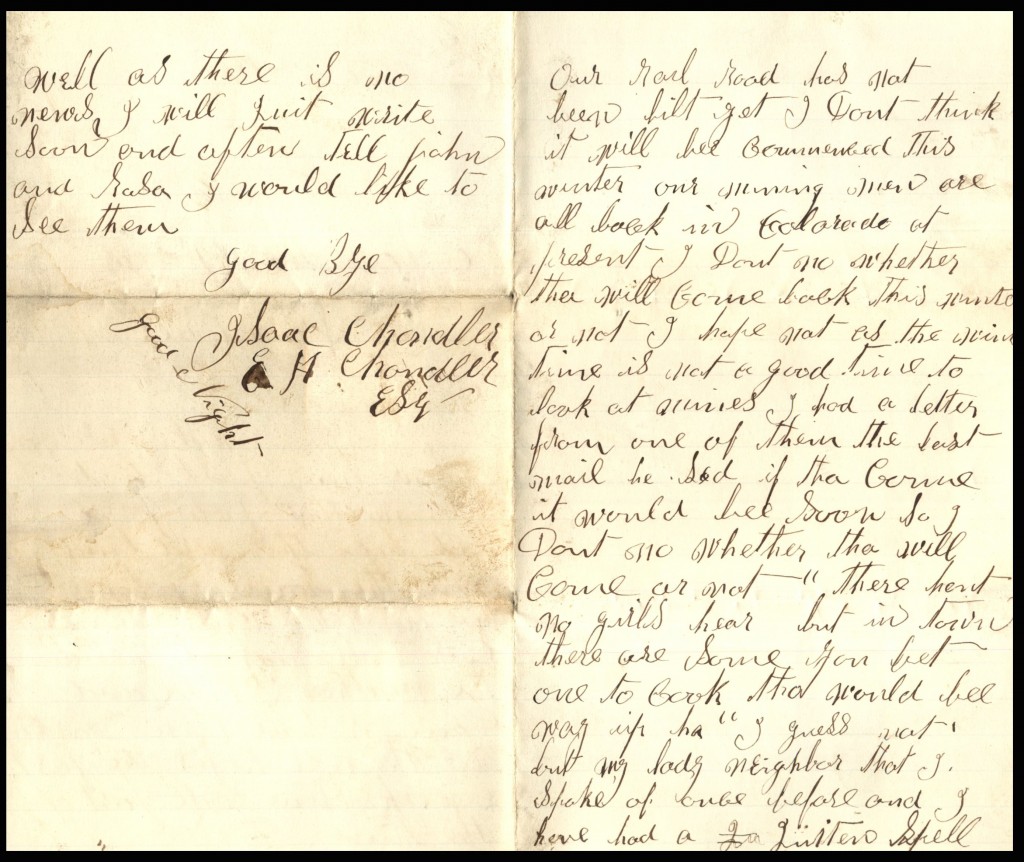 well as there is no
news, I will Quit write
Soon and often Tell john
and Rosa I would like to
See them
good Bye
Isaac Chandler
E H Chandler
ESq
good Night
Our Rail Road has not
been bilt yet I Dont think
it will bee Commenced This
winter our mining men are
all back in Colorado at
present I Dont no whether
tha will Come back This winte
or not I hope not as the win
time is not a good time to
look at mines I had a letter
from one of them the last
mail he Sed if tha Come
it would bee Soon So I
Dont no whether tha will
Come or not " there hant
no girls hear but in town
there are Some you bet
one to Cook tha would bee
way up ha " I guess not
but my lady neighbor that I.
Spoke of once before and I
have had a Quiten Spell